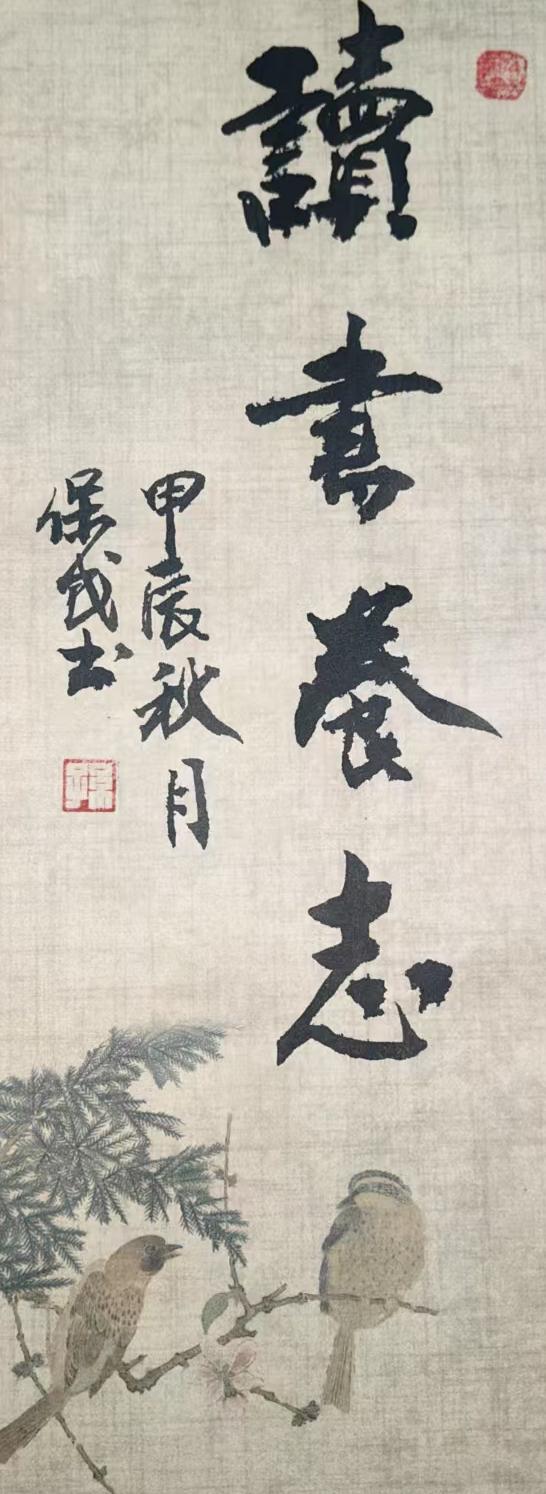 讀書養志
甲辰秋月
保成书